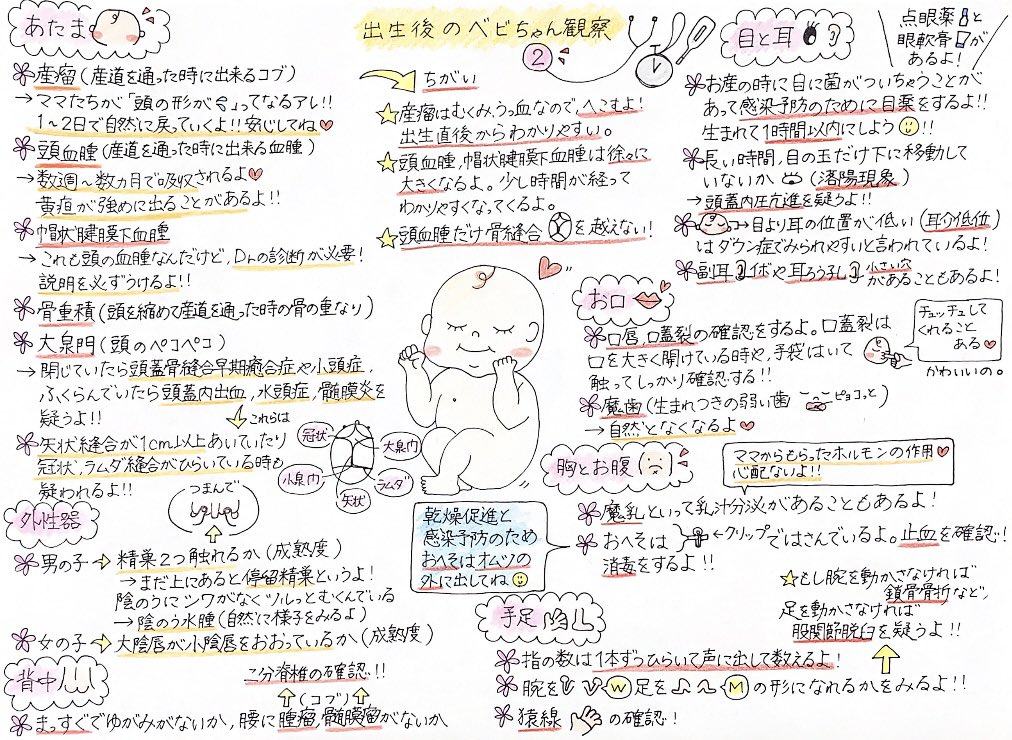 出生後のベビちゃん観察
2
あたま
産瘤(産道を通った時に出来るコブ)
→ママたちが「頭の形が」ってなるアレ!!
1〜2日で自然に戻っていくよ!!安心してね
頭血腫(産道を通った時に出来る血腫)
→数週〜数カ月で吸収されるよ
黄疸が強めに出ることがあるよ!!
帽状腱膜下血腫
→これも頭の血腫なんだけど、Drの診断が必要!
説明を必ずうけるよ!!
骨重積(頭を縮めて産道を通った時の骨の重なり)
大泉門(頭のペコペコ)
→閉じていたら頭蓋骨縫合早期癒合症や小頭症、
ふくらんでいたら頭蓋内出血、水頭症、髄膜炎を
疑うよ!!
これらは
矢状縫合が1cm以上あいていたり
冠状、ラムダ縫合がひらいている時も
疑われるよ!!
冠状
大泉門
小泉門
ラムダ
矢状
ちがい
産瘤はむくみ、うっ血なので、へこむよ!
出生直後からわかりやすい。
頭血腫、帽状腱膜下血腫は徐々に
大きくなるよ。少し時間が経って
わかりやすくなってくるよ。
頭血腫だけ骨縫合を越えない!
目と耳
点眼薬と
眼軟膏が
あるよ!
お産の時に目に菌がついちゃうことが
あって感染予防のために目薬をするよ!!
生まれて1時間以内にしよう!!
長い時間、目の玉だけ下に移動して
いないか(落陽現象)
→頭蓋内圧亢進を疑うよ!!
→目より耳の位置が低い(耳介低位)
はダウン症でみられやすいと言われているよ!
副耳イボや耳ろう孔小さい穴
があることもあるよ!
お口
口唇、口蓋裂の確認をするよ。口蓋裂は
口を大きく開けている時や、手袋はいて
触ってしっかり確認する!!
チュチュして
くれること
ある
かわいいの。
魔歯(生まれつきの弱い歯 ピョコっと)
→自然となくなるよ
胸とお腹
ママからもらったホルモンの作用
心配ないよ!!
魔乳といって乳汁分泌があることもあるよ!
おへそは←クリップではさんでいるよ。止血を確認!!
消毒をするよ!!
乾燥促進と
感染予防のため
おへそはオムツの
外に出してね
外性器
つまんで
男の子→精巣2つ触れるか(成熟度)
→まだ上にあると停留精巣というよ!
陰のうにシワがなくツルっとむくんでいる
→陰のう水腫(自然に様子をみるよ)
女の子→大陰唇が小陰唇をおおっているか(成熟度)
背中
二分脊椎の確認!!
(コブ)
まっすぐでゆがみがないか、腰に腫瘤、髄膜瘤がないか
手足
もし腕を動かさなければ
鎖骨骨折など、
足を動かさなければ
股関節脱臼を疑うよ!!
指の数は1本ずつひらいて声に出して数えるよ!
腕をW足をMの形になれるかをみるよ!!
猿線の確認!